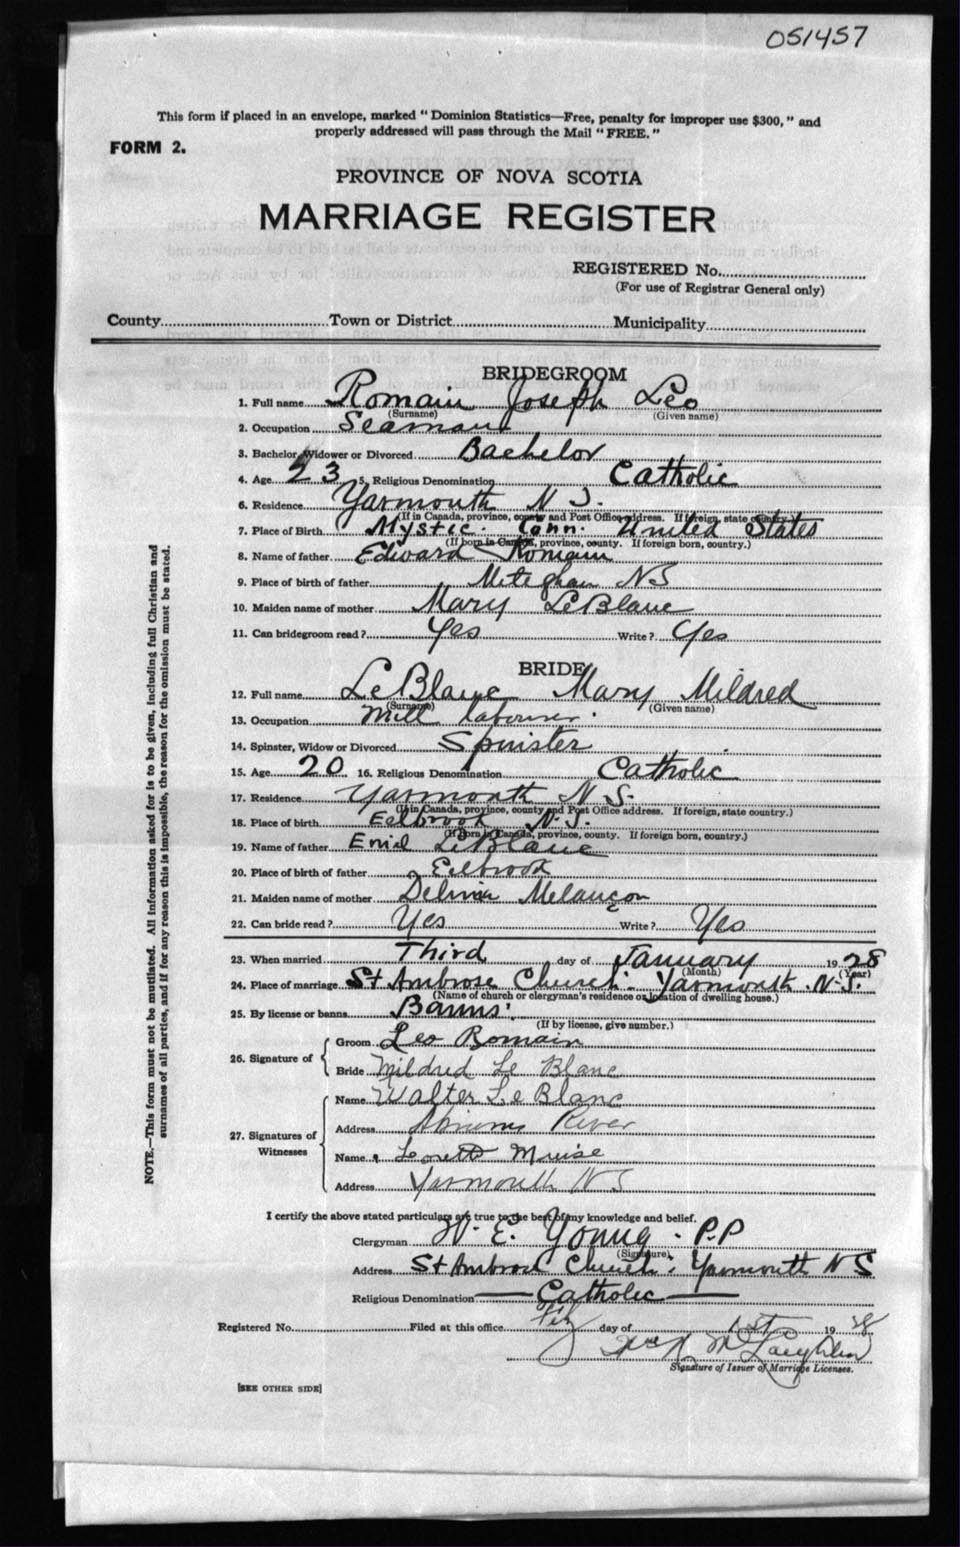 051457
This form if placed in an envelope, marked "Dominion Statistics—Free, penalty for improper use $300," and
properly addressed will pass through the Mail "FREE."
FORM 2.
PROVINCE OF NOVA SCOTIA
MARRIAGE REGISTER
REGISTERED No.
(For use of Registrar General only)
County Town or District Municipality
BRIDEGROOM
1. Full name Romain Joseph Leo
(Surname) (Given name)
2. Occupation Seaman
3. Bachelor, Widower or Divorced Bachelor
4. Age 23 5. Religious Denomination Catholic
6. Residence Yarmouth N S.
(If in Canada, province, county and Post Office address. If foreign, state country.)
7. Place of Birth Mystic. Conn. United States
(If born in Canada, province, county. If foreign born, country.)
8. Name of father Edward Romain
9. Place of birth of father Meteghan NS
10. Maiden name of mother Mary LeBlanc
11. Can bridegroom read? Yes Write? Yes
BRIDE
12. Full name LeBlanc Mary Mildred
(Surname) (Given name)
13. Occupation Mill Labourer.
14. Spinster, Widow or Divorced Spinster
15. Age 20 16. Religious Denomination Catholic
17. Residence Yarmouth N S.
(If in Canada, province, county and Post Office address. If foreign, state country.)
18. Place of birth Eelbrook N.S.
(If born in Canada, province, county. If foreign born, country.)
19. Name of father Emil LeBlanc
20. Place of birth of father Eelbrook
21. Maiden name of mother Delmia Melancon
22. Can bride read? Yes Write? Yes
23. When married Third day of January 1928
(Month) (Year)
24. Place of marriage St Ambrose Church. Yarmouth. N.S.
(Name of church or clergyman's residence or location of dwelling house.)
25. By license or banns Banns.
(If by license, give number.)
26. Signature of
Groom Leo Romain
Bride Mildred Le Blanc
27. Signatures of Witnesses
Name Walter Le Blanc
Address River
Name Muise
Address Yarmouth NS
I certify the above stated particulars are true to the best of my knowledge and belief.
Clergyman W. E. Young. P.P
(Signature)
Address St Ambrose Church. Yarmouth N S
Religious Denomination Catholic
Registered No. Filed at this office Feb day of 1st 1928
McLaughlin
Signature of Issuer of Marriage Licenses.
[SEE OTHER SIDE]
NOTE.—This form must not be mutilated. All information asked for is to be given, including full Christian and
surnames of all parties, and if for any reason this is impossible, the reason for the omission must be stated.